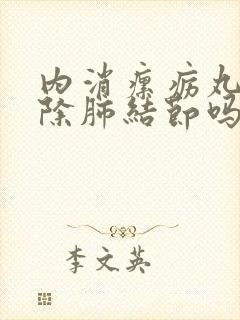 内消瘰疬丸
除肺結节吗
李文英